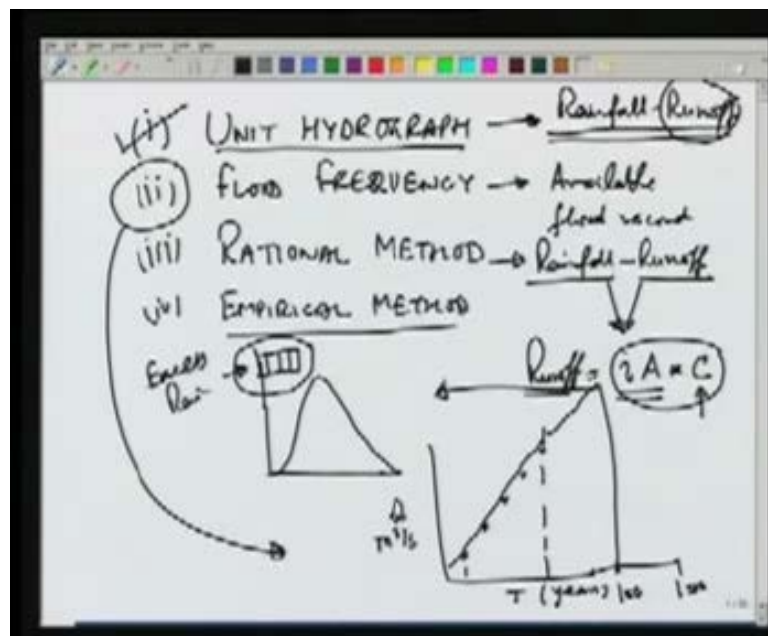 (i) UNIT HYDROGRAPH → Rainfall-Runoff
(ii) FLOOD FREQUENCY → Available
flood record
(iii) RATIONAL METHOD → Rainfall-Runoff
(iv) EMPIRICAL METHOD
Excess
Rain
Runoff = iA × C
Q
m³/s
T (years) 100